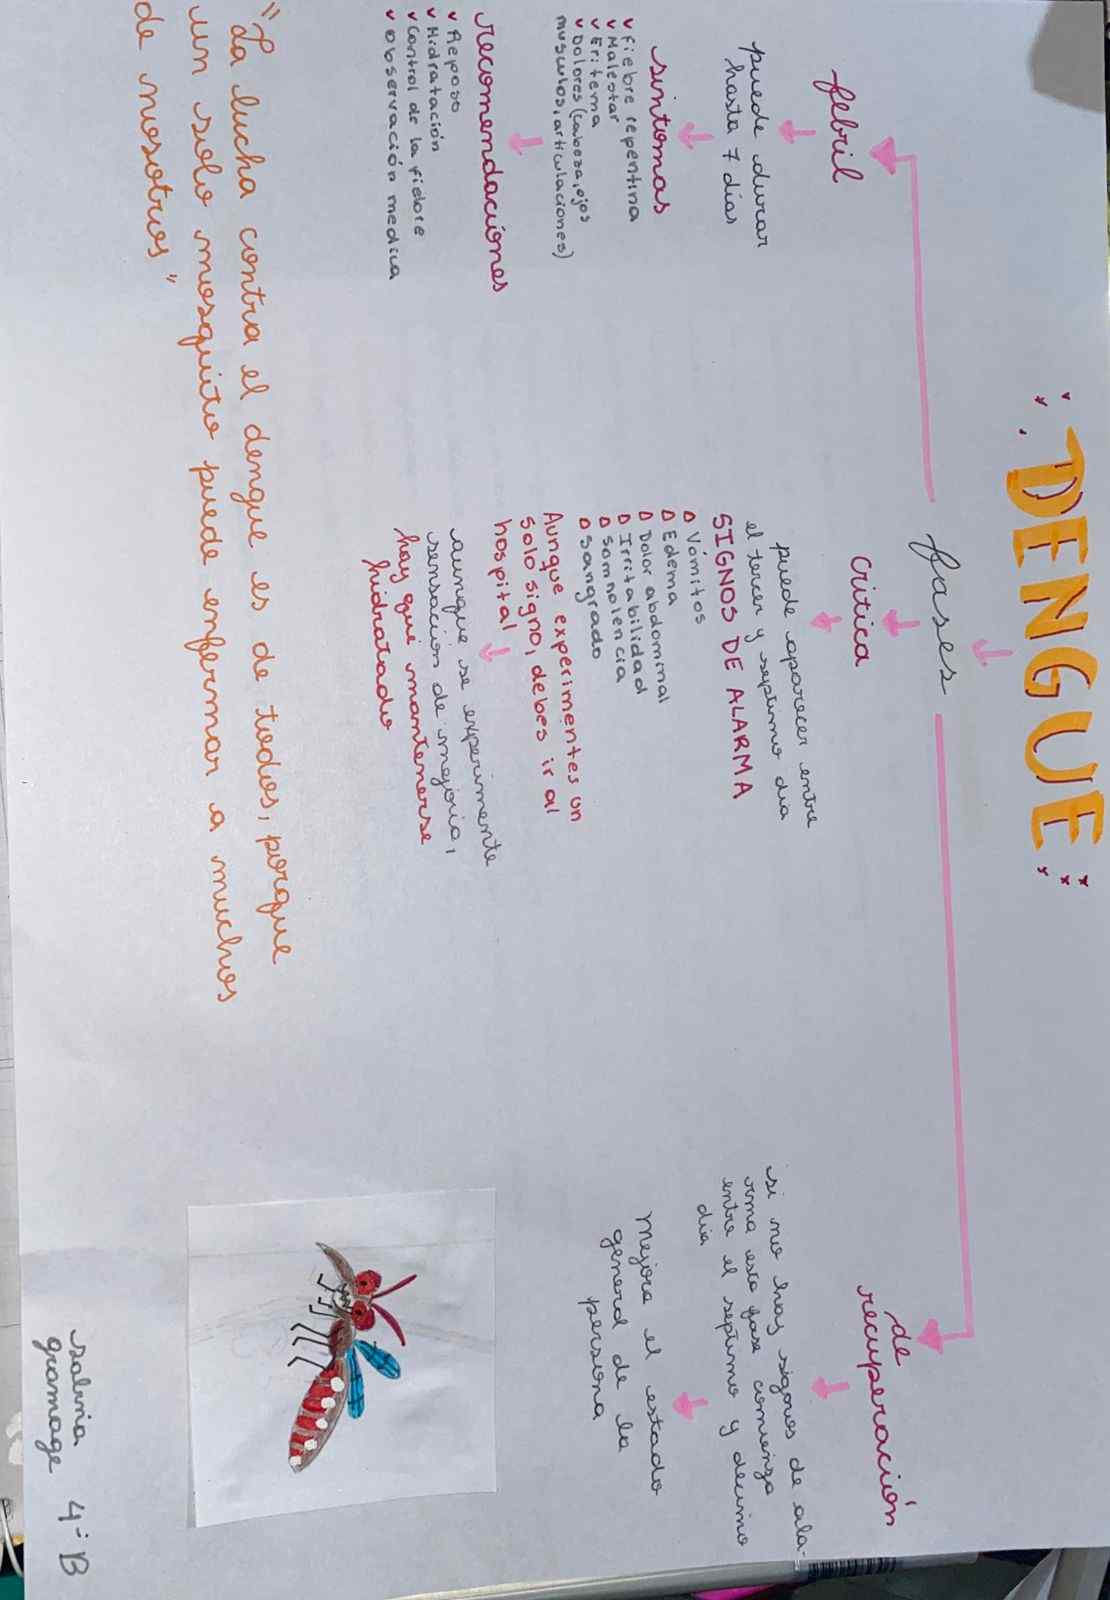 DENGUE
fases
febril
puede durar
hasta 7 días
sintomas
fiebre repentina
Malestar
Eritema
Dolores (cabeza, ojos
musculos, articulaciones)
recomendaciones
Reposo
Hidratación
Control de la fiebre
observación medica
critica
puede aparecer entre
el tercer y septimo dia
SIGNOS DE ALARMA
Vómitos
Edema
Dolor abdominal
Irritabilidad
Somnolencia
Sangrado
Aunque experimentes un
solo signo, debes ir al
hospital
aunque se experimente
sensación de mejoria,
hay que mantenerse
hidratado
de
recuperación
si no hay signos de ala-
rma esta fase comienza
entre el septimo y decimo
dia
Mejora el estado
general de la
persona
"La lucha contra el dengue es de todos, porque
un solo mosquito puede enfermar a muchos
de nosotros"
gramage 4-B